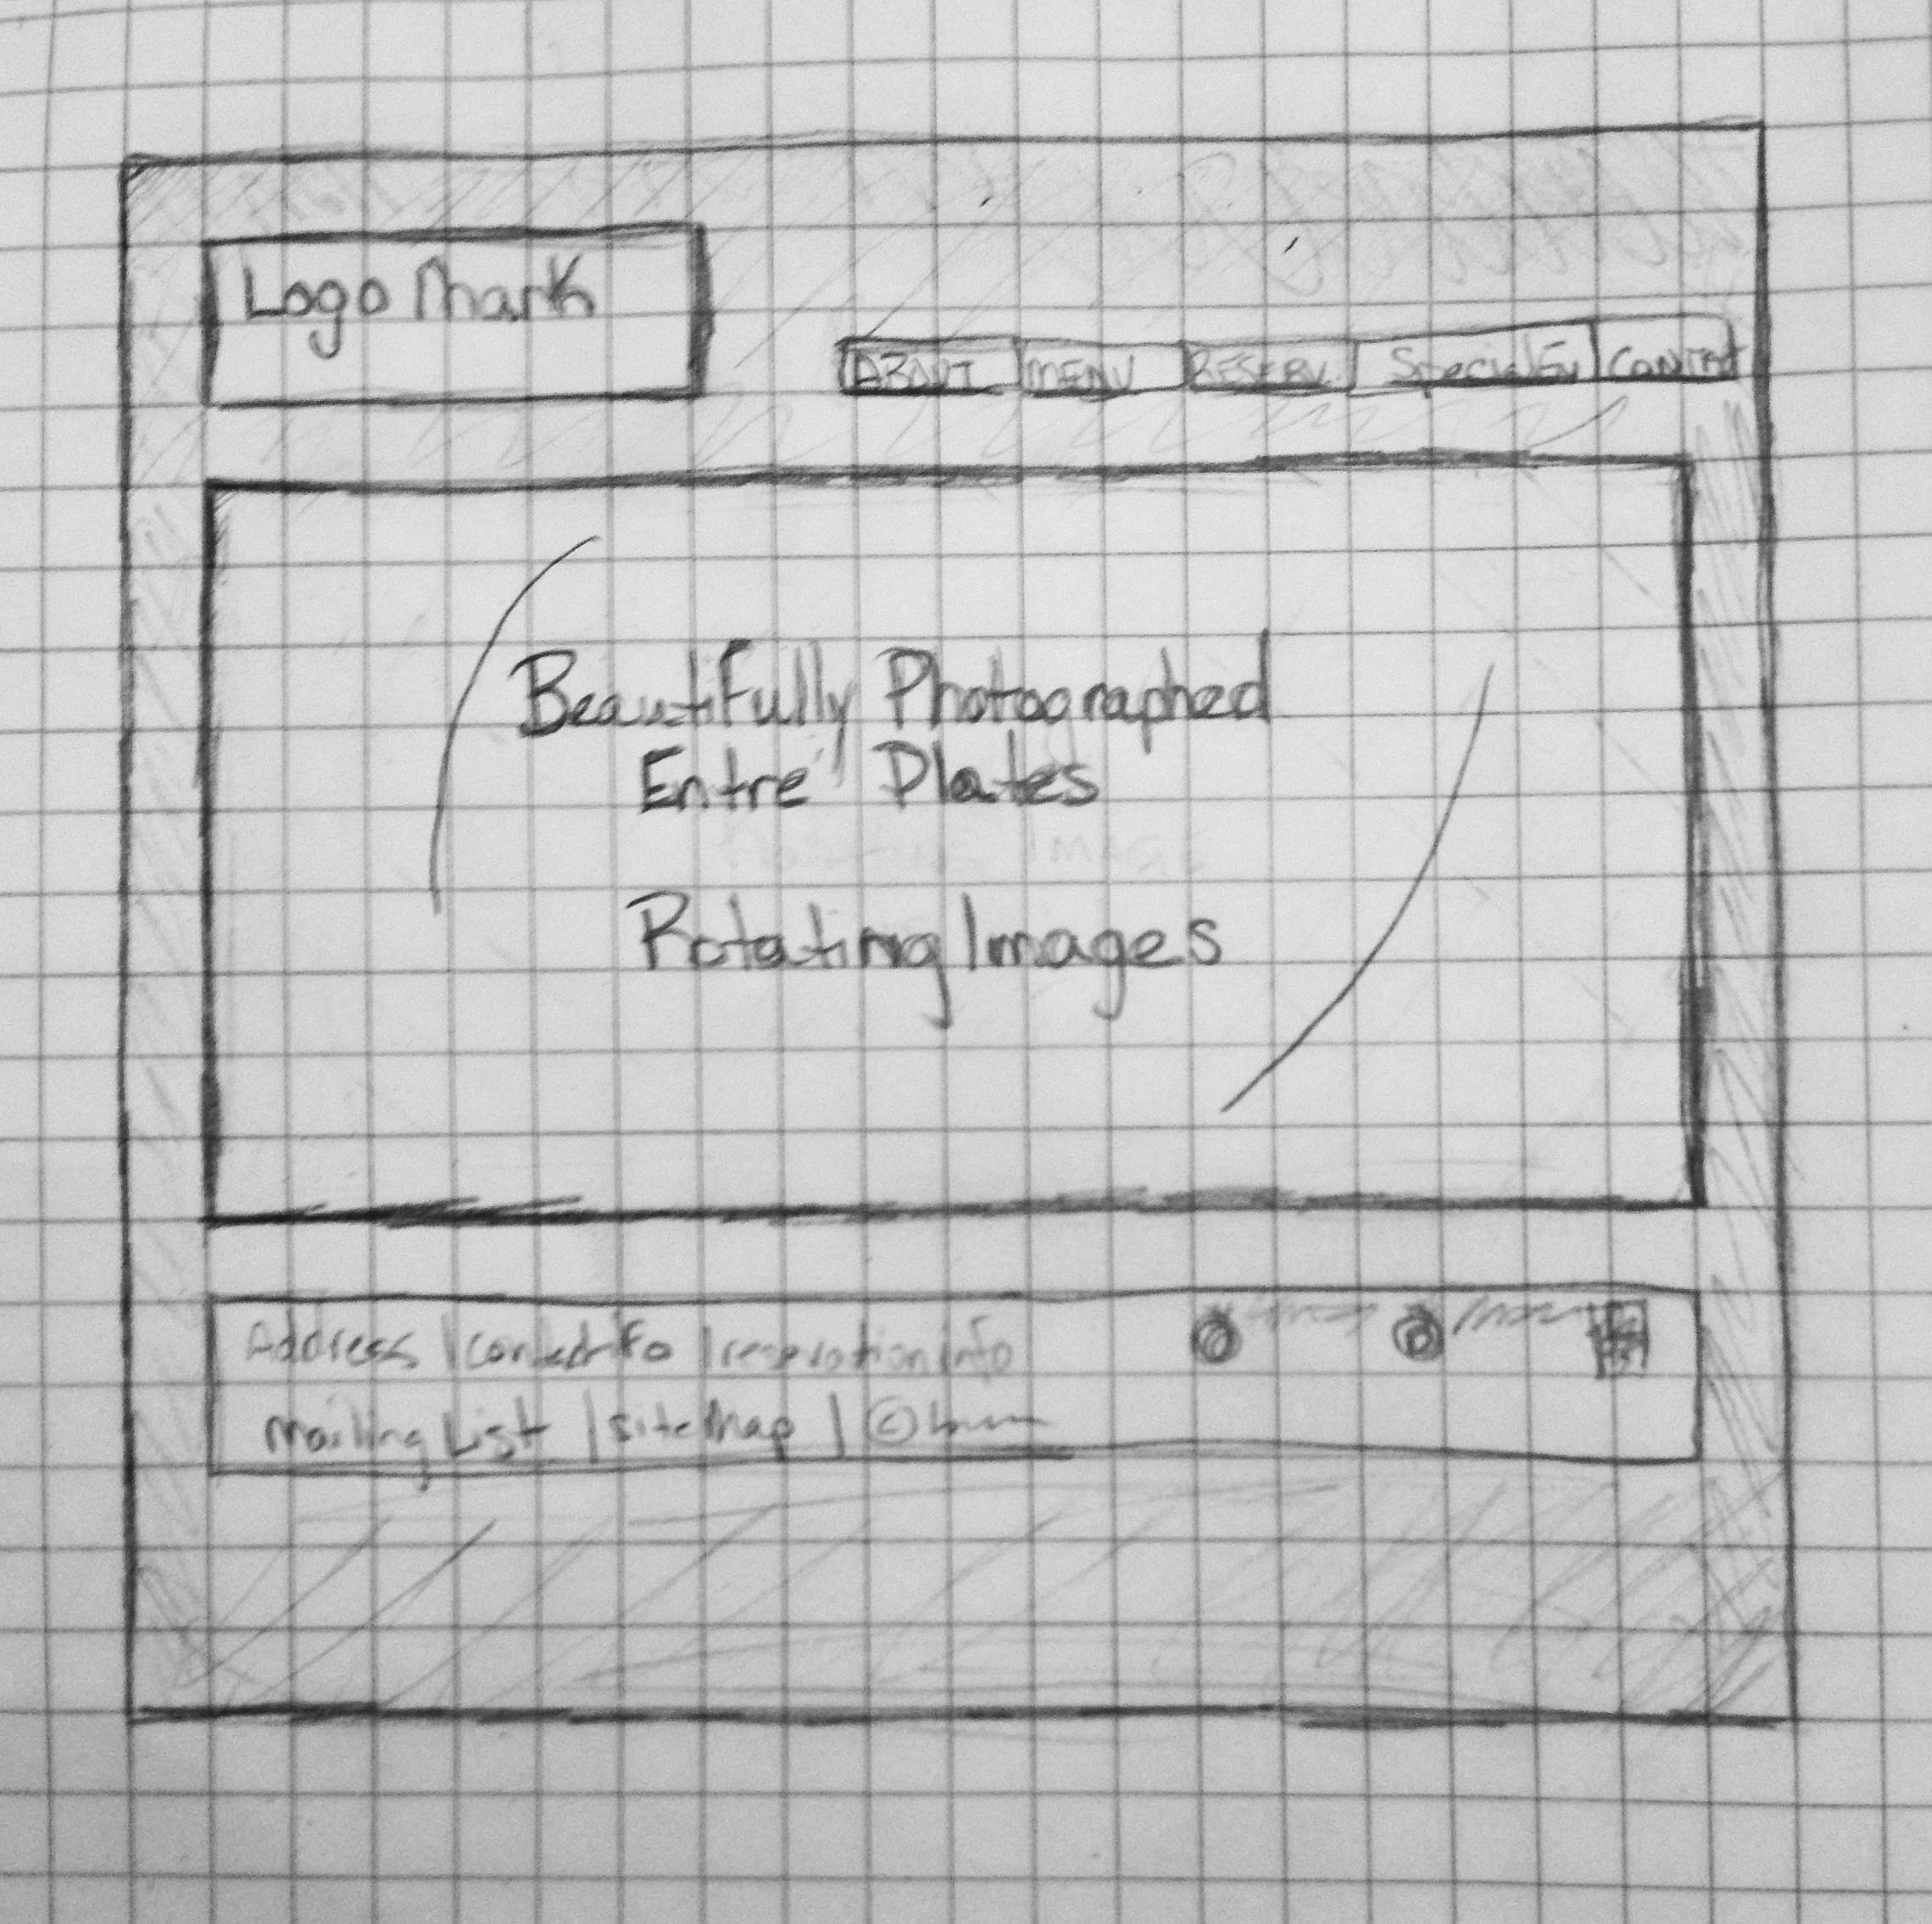 Logo Mark
ABOUT MENU RESERV. Special Ev Contact
Beautifully Photographed
Entre' Plates
Rotating Images
Address | contact Fo | reservation info
Mailing List | site Map | ©